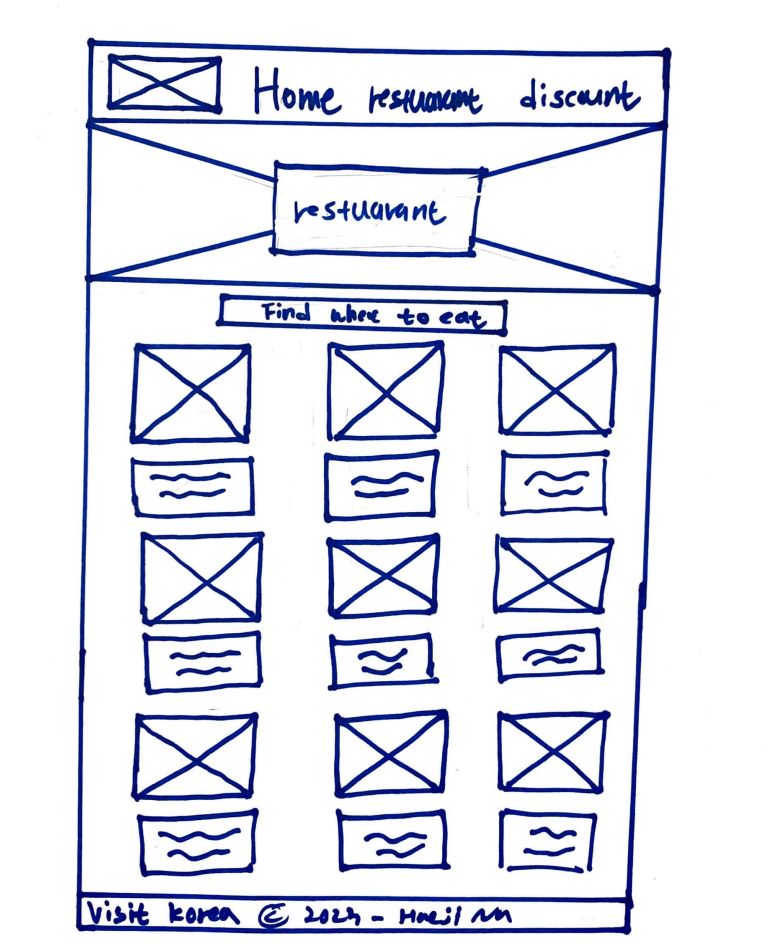 Home restuarant discount
restuarant
Find where to eat
Visit korea ©